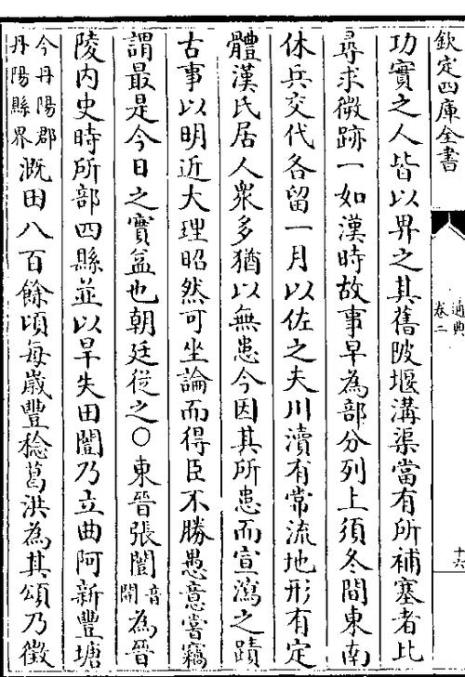 欽定四庫全書
通典
卷二
十六
功實之人皆以畀之其舊陂堰溝渠當有所補塞者比
尋求微跡一如漢時故事早為部分列上須冬間東南
休兵交代各留一月以佐之夫川瀆有常流地形有定
體漢氏居人衆多猶以無患今因其所患而宣瀉之蹟
古事以明近大理昭然可坐論而得臣不勝愚意嘗竊
謂最是今日之實益也朝廷從之○東晉張闓音開為晉
陵内史時所部四縣並以旱失田闓乃立曲阿新豐塘
今丹陽郡丹陽縣界溉田八百餘頃每歲豐稔葛洪為其頌乃徵